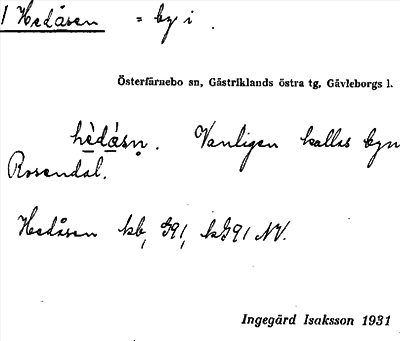 1 Hedåsen = by i .
Österfärnebo sn, Gästriklands östra tg, Gävleborgs l.
hèdåsn. Vanligen kallas byn
Rosendal.
Hedåsen kb, G91, kG91 NV.
Ingegärd Isaksson 1931